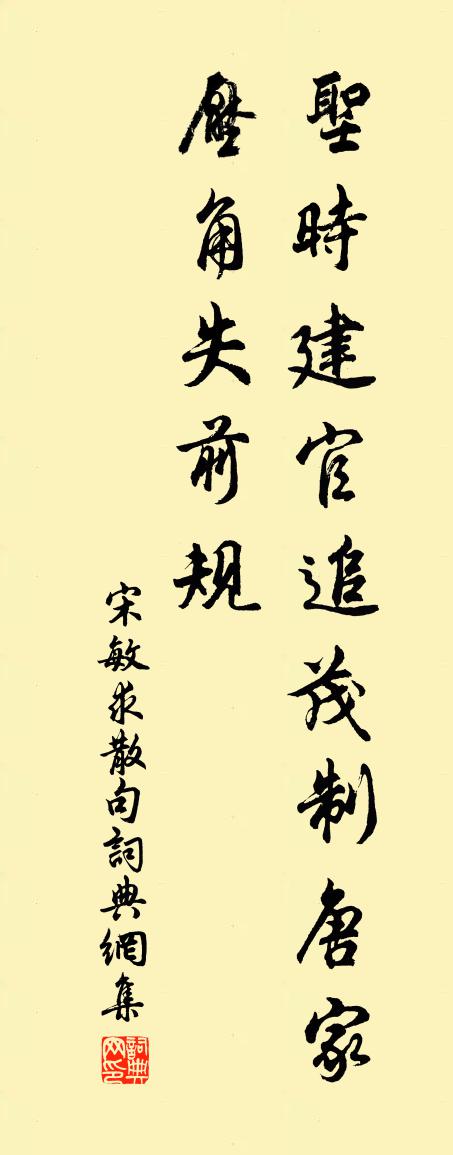 聖時建官追茂制唐家
壓角失前規
宋敏求散句詞典網集
詞典网印